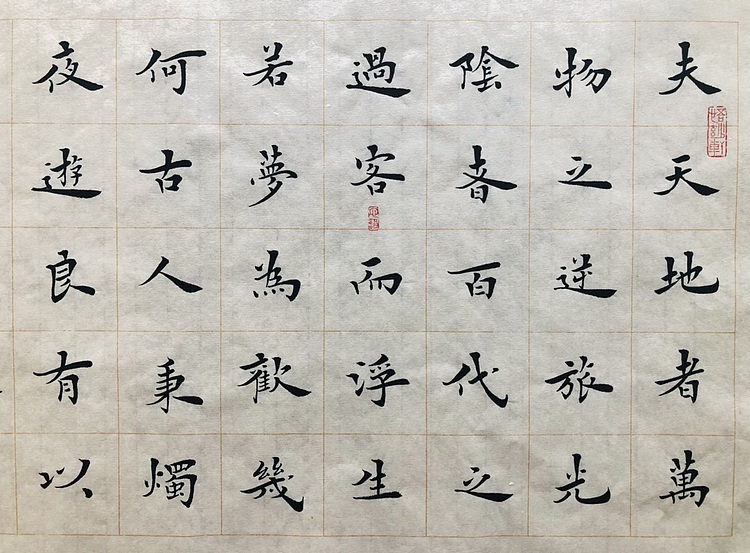 夫天地者萬
物之逆旅光
陰者百代之
過客而浮生
若夢為歡幾
何古人秉燭
夜遊良有以